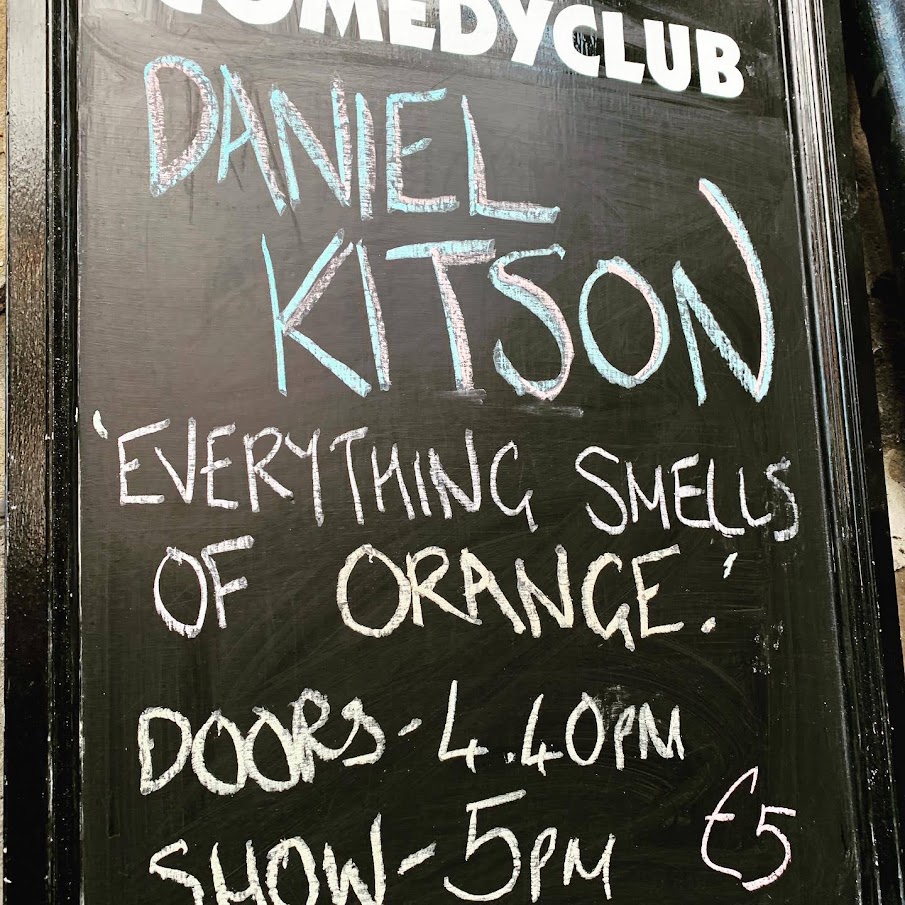 COMEDYCLUB
DANIEL
KITSON
'EVERYTHING SMELLS
OF ORANGE.'
DOORS - 4.40PM
SHOW - 5PM £5